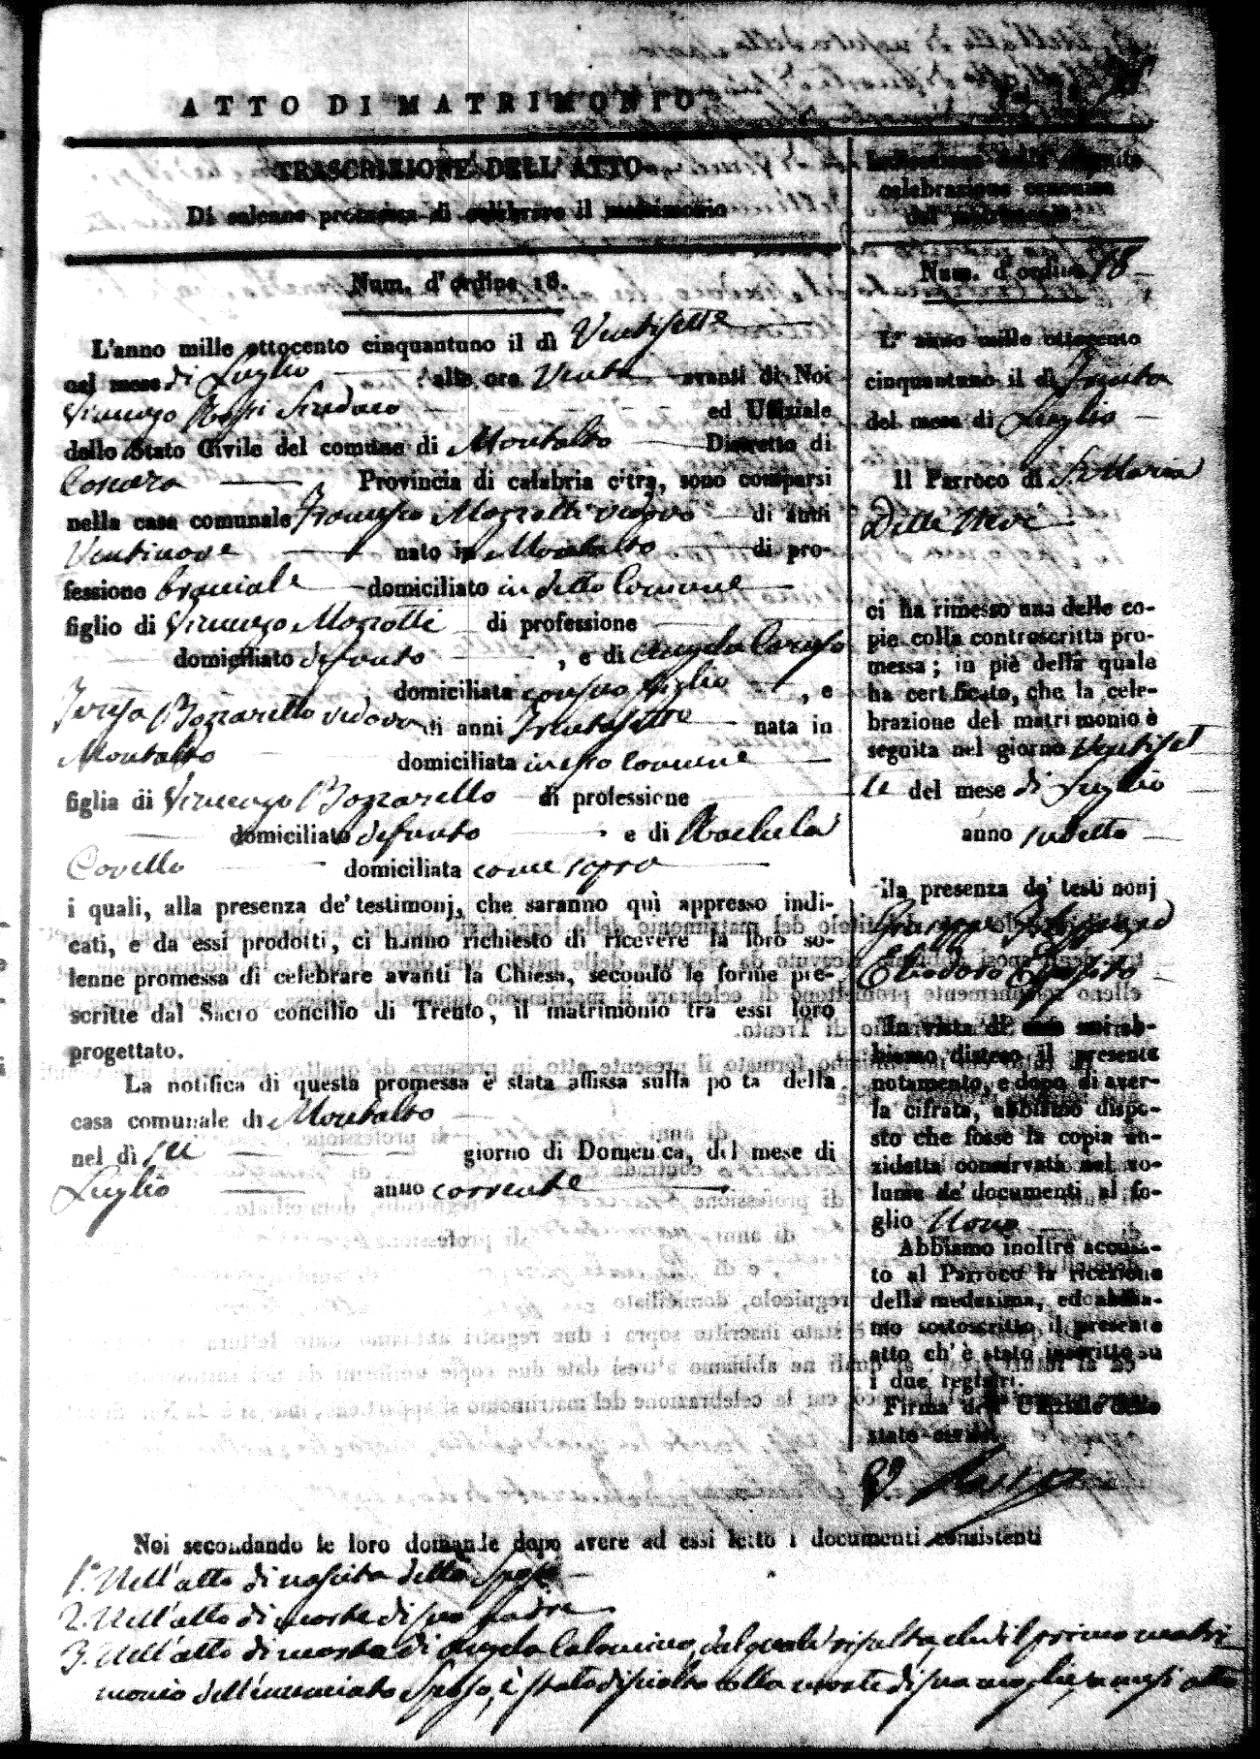 ATTO DI MATRIMONIO
TRASCRIZIONE DELL' ATTO
Di solenne promessa di celebrare il matrimonio
Num. d' ordine 18.
L'anno mille ottocento cinquantuno il dì Ventisette
nel mese di Luglio alle ore Venti avanti di Noi
Vincenzo Rossi Sindaco ed Uffiziale
dello Stato Civile del comune di Montalto Distretto di
Cosenza Provincia di calabria citra, sono comparsi
nella casa comunale Francesco Mazzotti vedovo di anni
Ventinove nato in Montalto di pro-
fessione bracciale domiciliato in detto Comune
figlio di Vincenzo Mazzotti di professione
domiciliato defunto , e di Angela Caruso
domiciliata con suo figlio , e
Teresa Bozzarello vedova di anni Trentasette nata in
Montalto domiciliata in esso Comune
figlia di Vincenzo Bozzarello di professione
domiciliato defunto e di Rachela
Covello domiciliata come sopra
i quali, alla presenza de' testimonj, che saranno quì appresso indi-
cati, e da essi prodotti, ci hanno richiesto di ricevere la loro so-
lenne promessa di celebrare avanti la Chiesa, secondo le forme pre-
scritte dal Sacro concilio di Trento, il matrimonio tra essi loro
progettato.
La notifica di questa promessa è stata affissa sulla po ta della
casa comunale di Montalto
nel dì sei giorno di Domenica, del mese di
Luglio anno corrente
Noi secondando le loro domande dopo avere ad essi letto i documenti consistenti
1.° Nell'atto di nascita dello Sposo
2. Nell'atto di morte di suo padre
3. Nell'atto di morte di Angela Calomino, dal quale risulta, che il primo matri
monio dell'enunciato Sposo, è stato disciolto colla morte di sua moglie, a mesi otto
Indicazione della seguita
celebrazione canonica
del matrimonio.
Num. d'ordine 18
L' anno mille ottocento
cinquantuno il dì Trenta
del mese di Luglio
Il Parroco di S. Maria
Della Neve
ci ha rimesso una delle co-
pie colla controscritta pro-
messa; in piè della quale
ha certificato, che la cele-
brazione del matrimonio è
seguita nel giorno Ventiset
te del mese di Luglio
anno sudetto
lla presenza de' testi nonj
In vista di essa noi ab-
biamo disteso il presente
notamento, e dopo di aver-
la cifrata, abbiamo dispo-
sto che fosse la copia an-
zidetta conservata nel vo-
lume de' documenti al fo-
glio Nono
Abbiamo inoltre accusa-
to al Parroco la ricezione
della medesima, ed abbia-
mo sottoscritto il presente
atto ch' è stato inscritto su
i due registri.
Firma dell' Uffiziale dello
stato civile